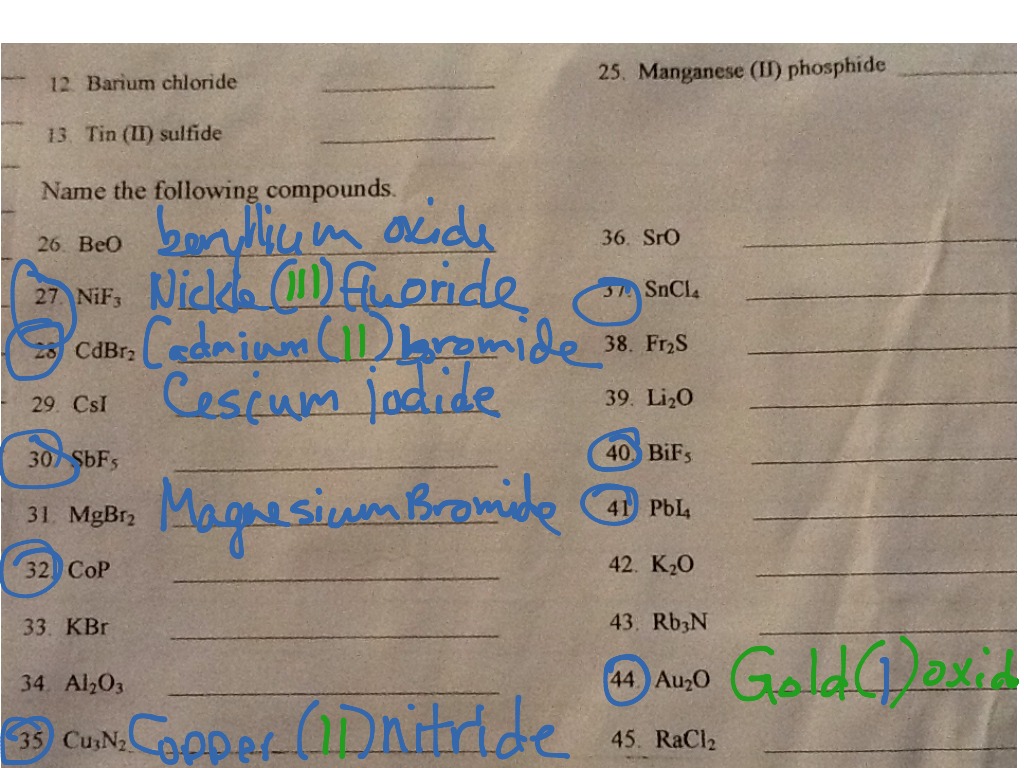 12. Barium chloride
13. Tin (II) sulfide
25. Manganese (II) phosphide
Name the following compounds.
26. BeO beryllium oxide
27. NiF₃ Nickle (III) fluoride
28 CdBr₂ Cadmium (II) bromide
29. CsI Cesium iodide
30. SbF₅
31. MgBr₂ Magnesium Bromide
32. CoP
33. KBr
34. Al₂O₃
35 Cu₃N₂ Copper (II) nitride
36. SrO
37. SnCl₄
38. Fr₂S
39. Li₂O
40. BiF₅
41. PbI₄
42. K₂O
43. Rb₃N
44. Au₂O Gold (I) oxid
45. RaCl₂